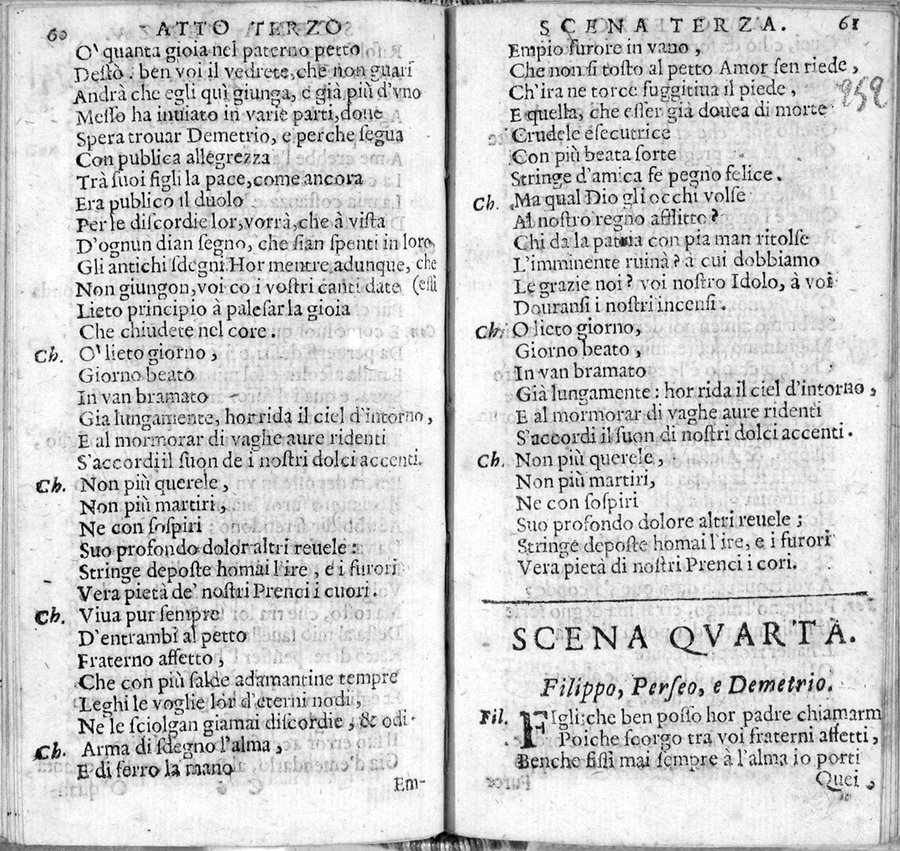 60 ATTO TERZO
O' quanta gioia nel paterno petto
Destò: ben voi il vedrete, che non guari
Andrà che egli quì giunga, e già più d'vno
Messo ha inuiato in varie parti, doue
Spera trouar Demetrio, e perche segua
Con publica allegrezza
Trà suoi figli la pace, come ancora
Era publico il duolo
Per le discordie lor, vorrà, che à vista
D'ognun dian segno, che sian spenti in loro
Gli antichi sdegni. Hor mentre adunque, che
Non giungon, voi co i vostri canti date (essi
Lieto principio à palesar la gioia
Che chiudete nel core.
Ch. O' lieto giorno,
Giorno beato
In van bramato
Gia lungamente, hor rida il ciel d'intorno,
E al mormorar di vaghe aure ridenti
S'accordi il suon de i nostri dolci accenti.
Ch. Non più querele,
Non più martiri,
Ne con sospiri
Suo profondo dolor altri reuele:
Stringe deposte homai l'ire, e i furori
Vera pietà de' nostri Prenci i cuori.
Ch. Viua pur sempre
D'entrambi al petto
Fraterno affetto,
Che con più salde adamantine tempre
Leghi le voglie lor d'eterni nodi,
Ne le sciolgan giamai discordie, & odi.
Ch. Arma di sdegno l'alma,
E di ferro la mano
Em-
SCENA TERZA. 61
Empio furore in vano,
Che non sì tosto al petto Amor sen riede,
Ch'ira ne torce fuggitiua il piede,
259
E quella, che esser già douea di morte
Crudele esecutrice
Con più beata sorte
Stringe d'amica fe pegno felice.
Ch. Ma qual Dio gli occhi volse
Al nostro regno afflitto?
Chi da la patria con pia man ritolse
L'imminente ruina? à cui dobbiamo
Le grazie noi? voi nostro Idolo, à voi
Douransi i nostri incensi.
Ch. O lieto giorno,
Giorno beato,
In van bramato
Già lungamente: hor rida il ciel d'intorno,
E al mormorar di vaghe aure ridenti
S'accordi il suon di nostri dolci accenti.
Ch. Non più querele,
Non più martiri,
Ne con sospiri
Suo profondo dolore altri reuele;
Stringe deposte homai l'ire, e i furori
Vera pietà di nostri Prenci i cori.
SCENA QVARTA.
Filippo, Perseo, e Demetrio.
Fil. FIgli: che ben posso hor padre chiamarm
Poiche scorgo tra voi fraterni affetti,
Benche fissi mai sempre à l'alma io porti
Quei,